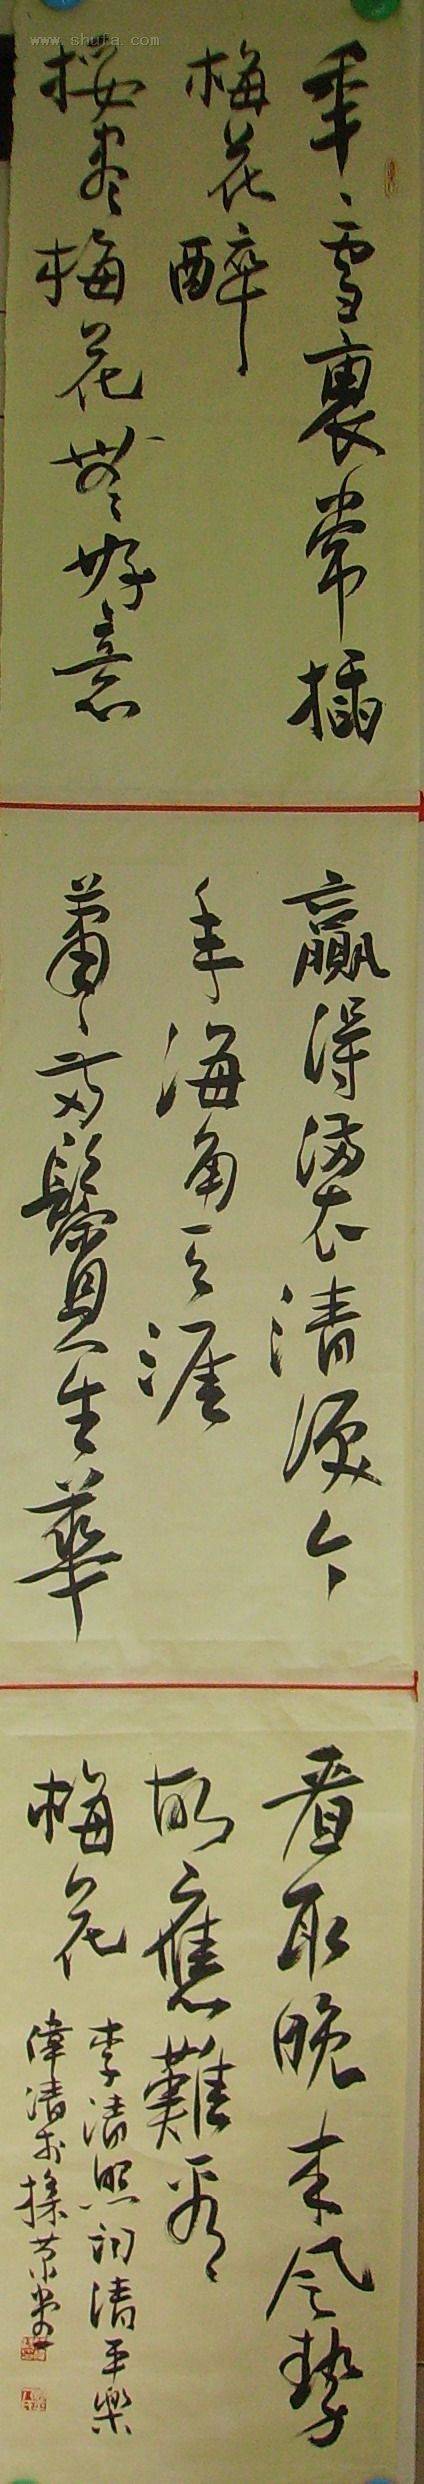 www.shufa.com
年〻雪裏常插
梅花醉
挼盡梅花無〻好意
贏得滿衣清淚今
年海角天涯
蕭〻兩鬢生華
看取晚來風勢
故應難看〻
梅花
李清照詞清平樂
偉清於